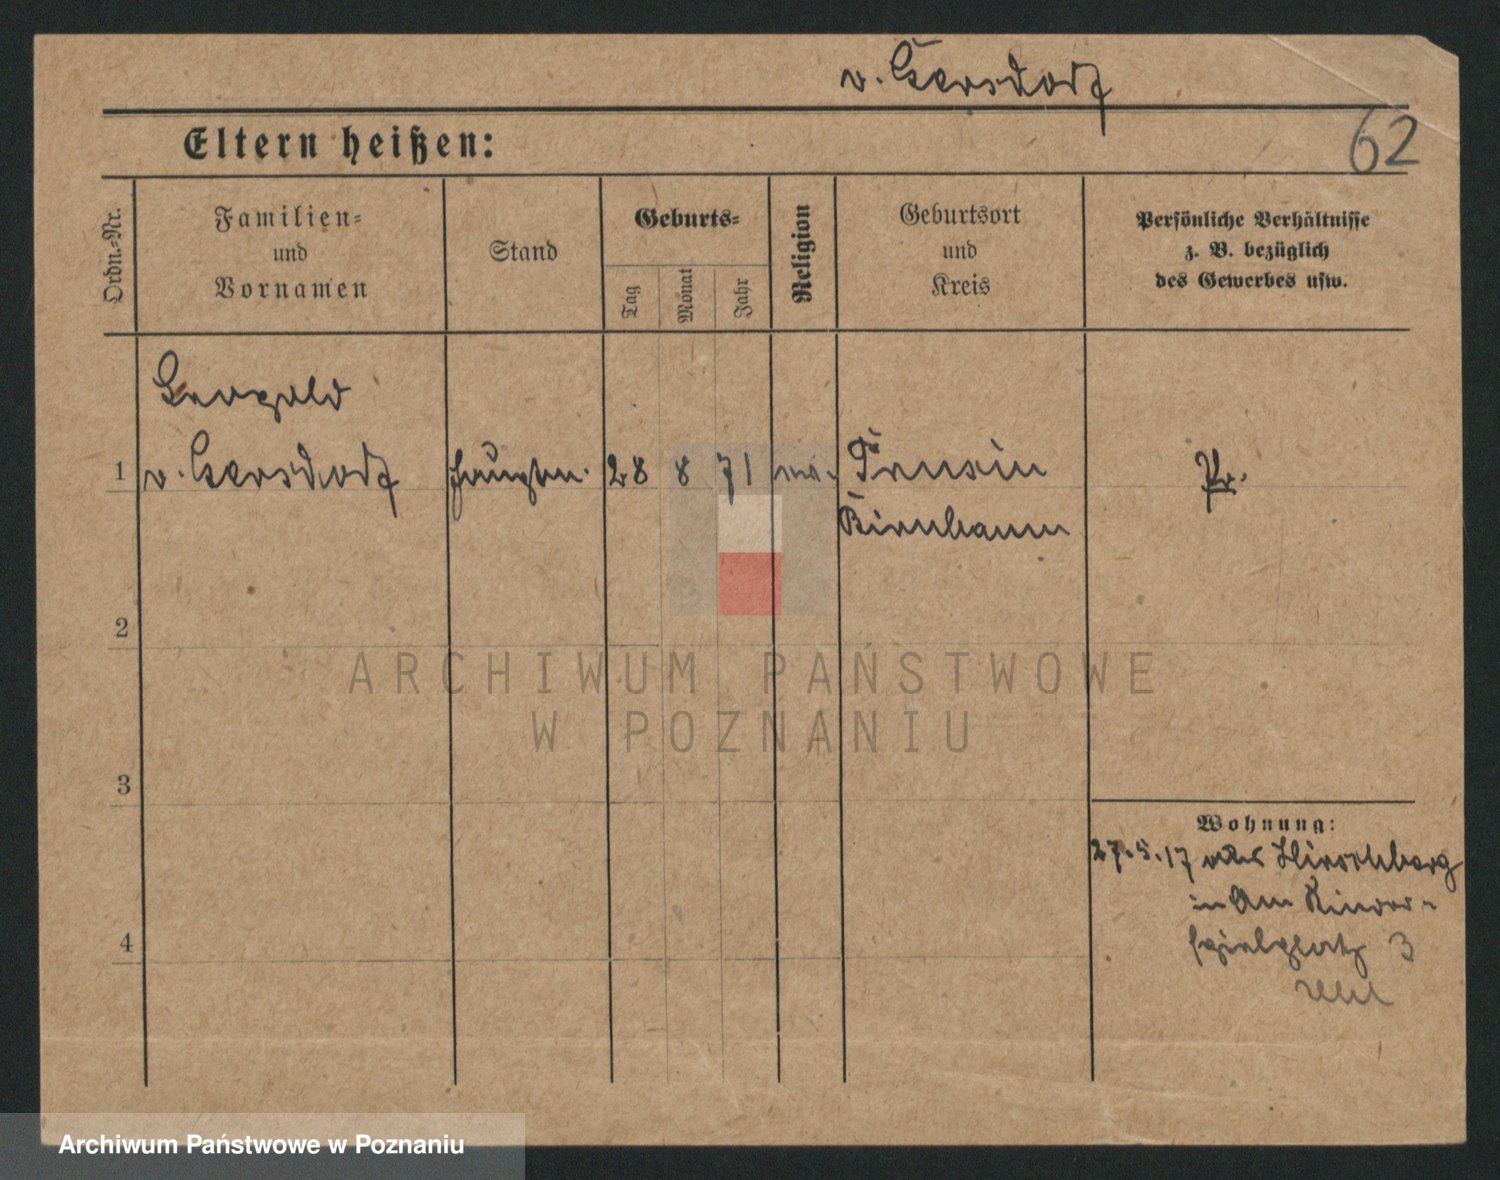 v. Gersdorf
62
Eltern heißen:
Ordn.-Nr.
Familien-
und
Vornamen
Stand
Geburts-
Tag
Monat
Jahr
Religion
Geburtsort
und
Kreis
Persönliche Verhältnisse
z. B. bezüglich
des Gewerbes usw.
Leopold
1 v. Gersdorf Hauptm. 28 8 71 Prusim Pr.
Birnbaum
2
3
4
Wohnung:
27.5.17 Hirschberg
in Am Kinder-
spielplatz 3
ARCHIWUM PAŃSTWOWE
W POZNANIU
Archiwum Państwowe w Poznaniu